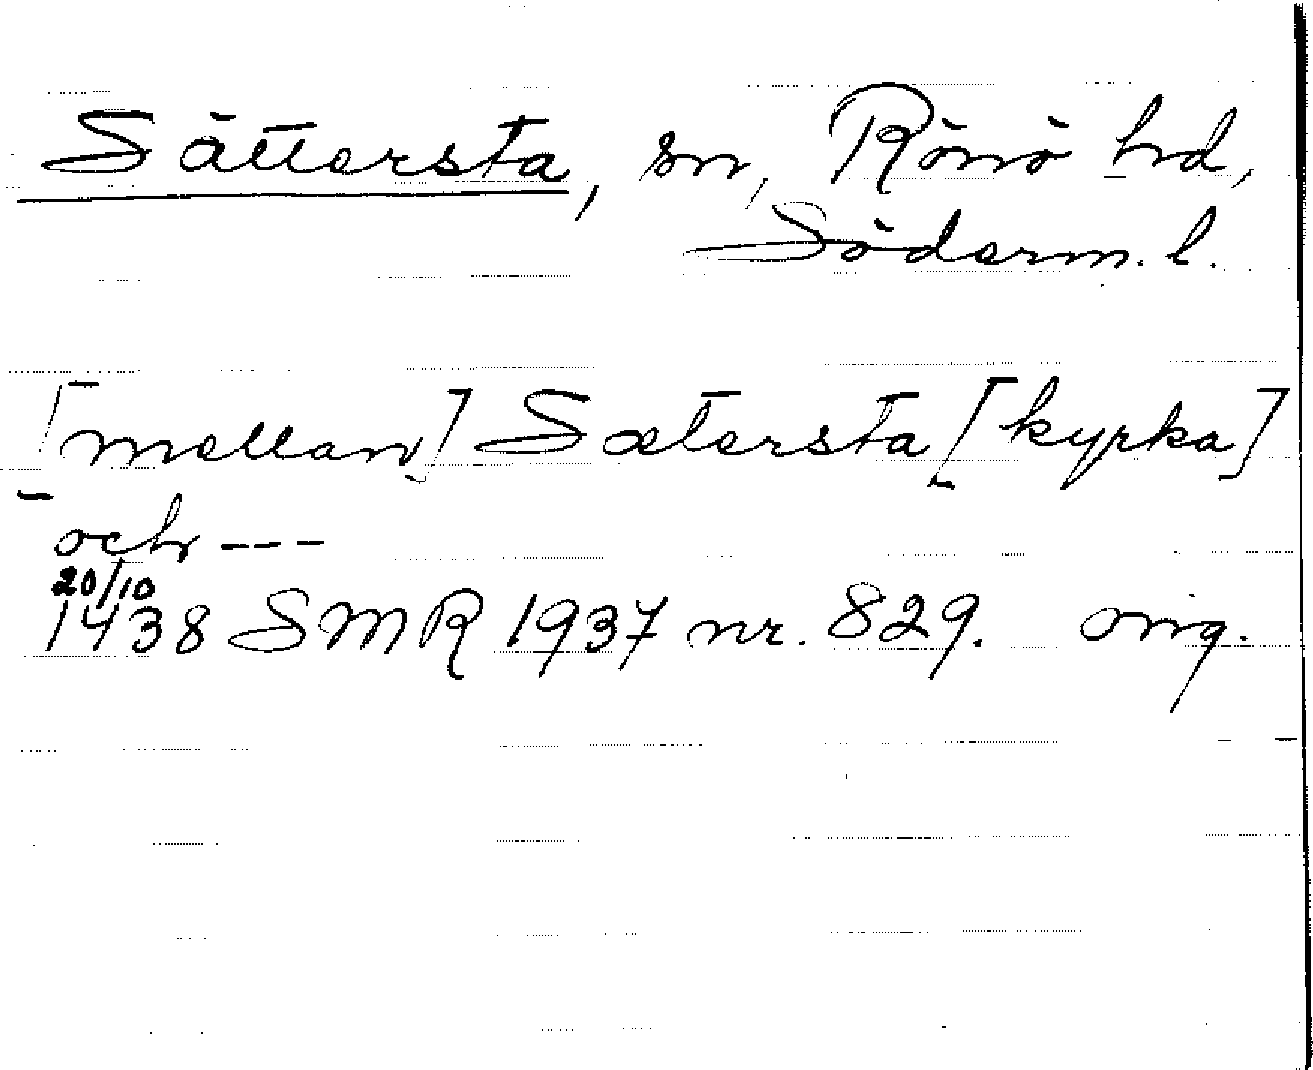 Sättersta, sn, Rönö hd,
Söderm. l.
[mellan] Sætersta [kyrka]
och ---
20/10
1438 SMR 1937 nr. 829. orig.